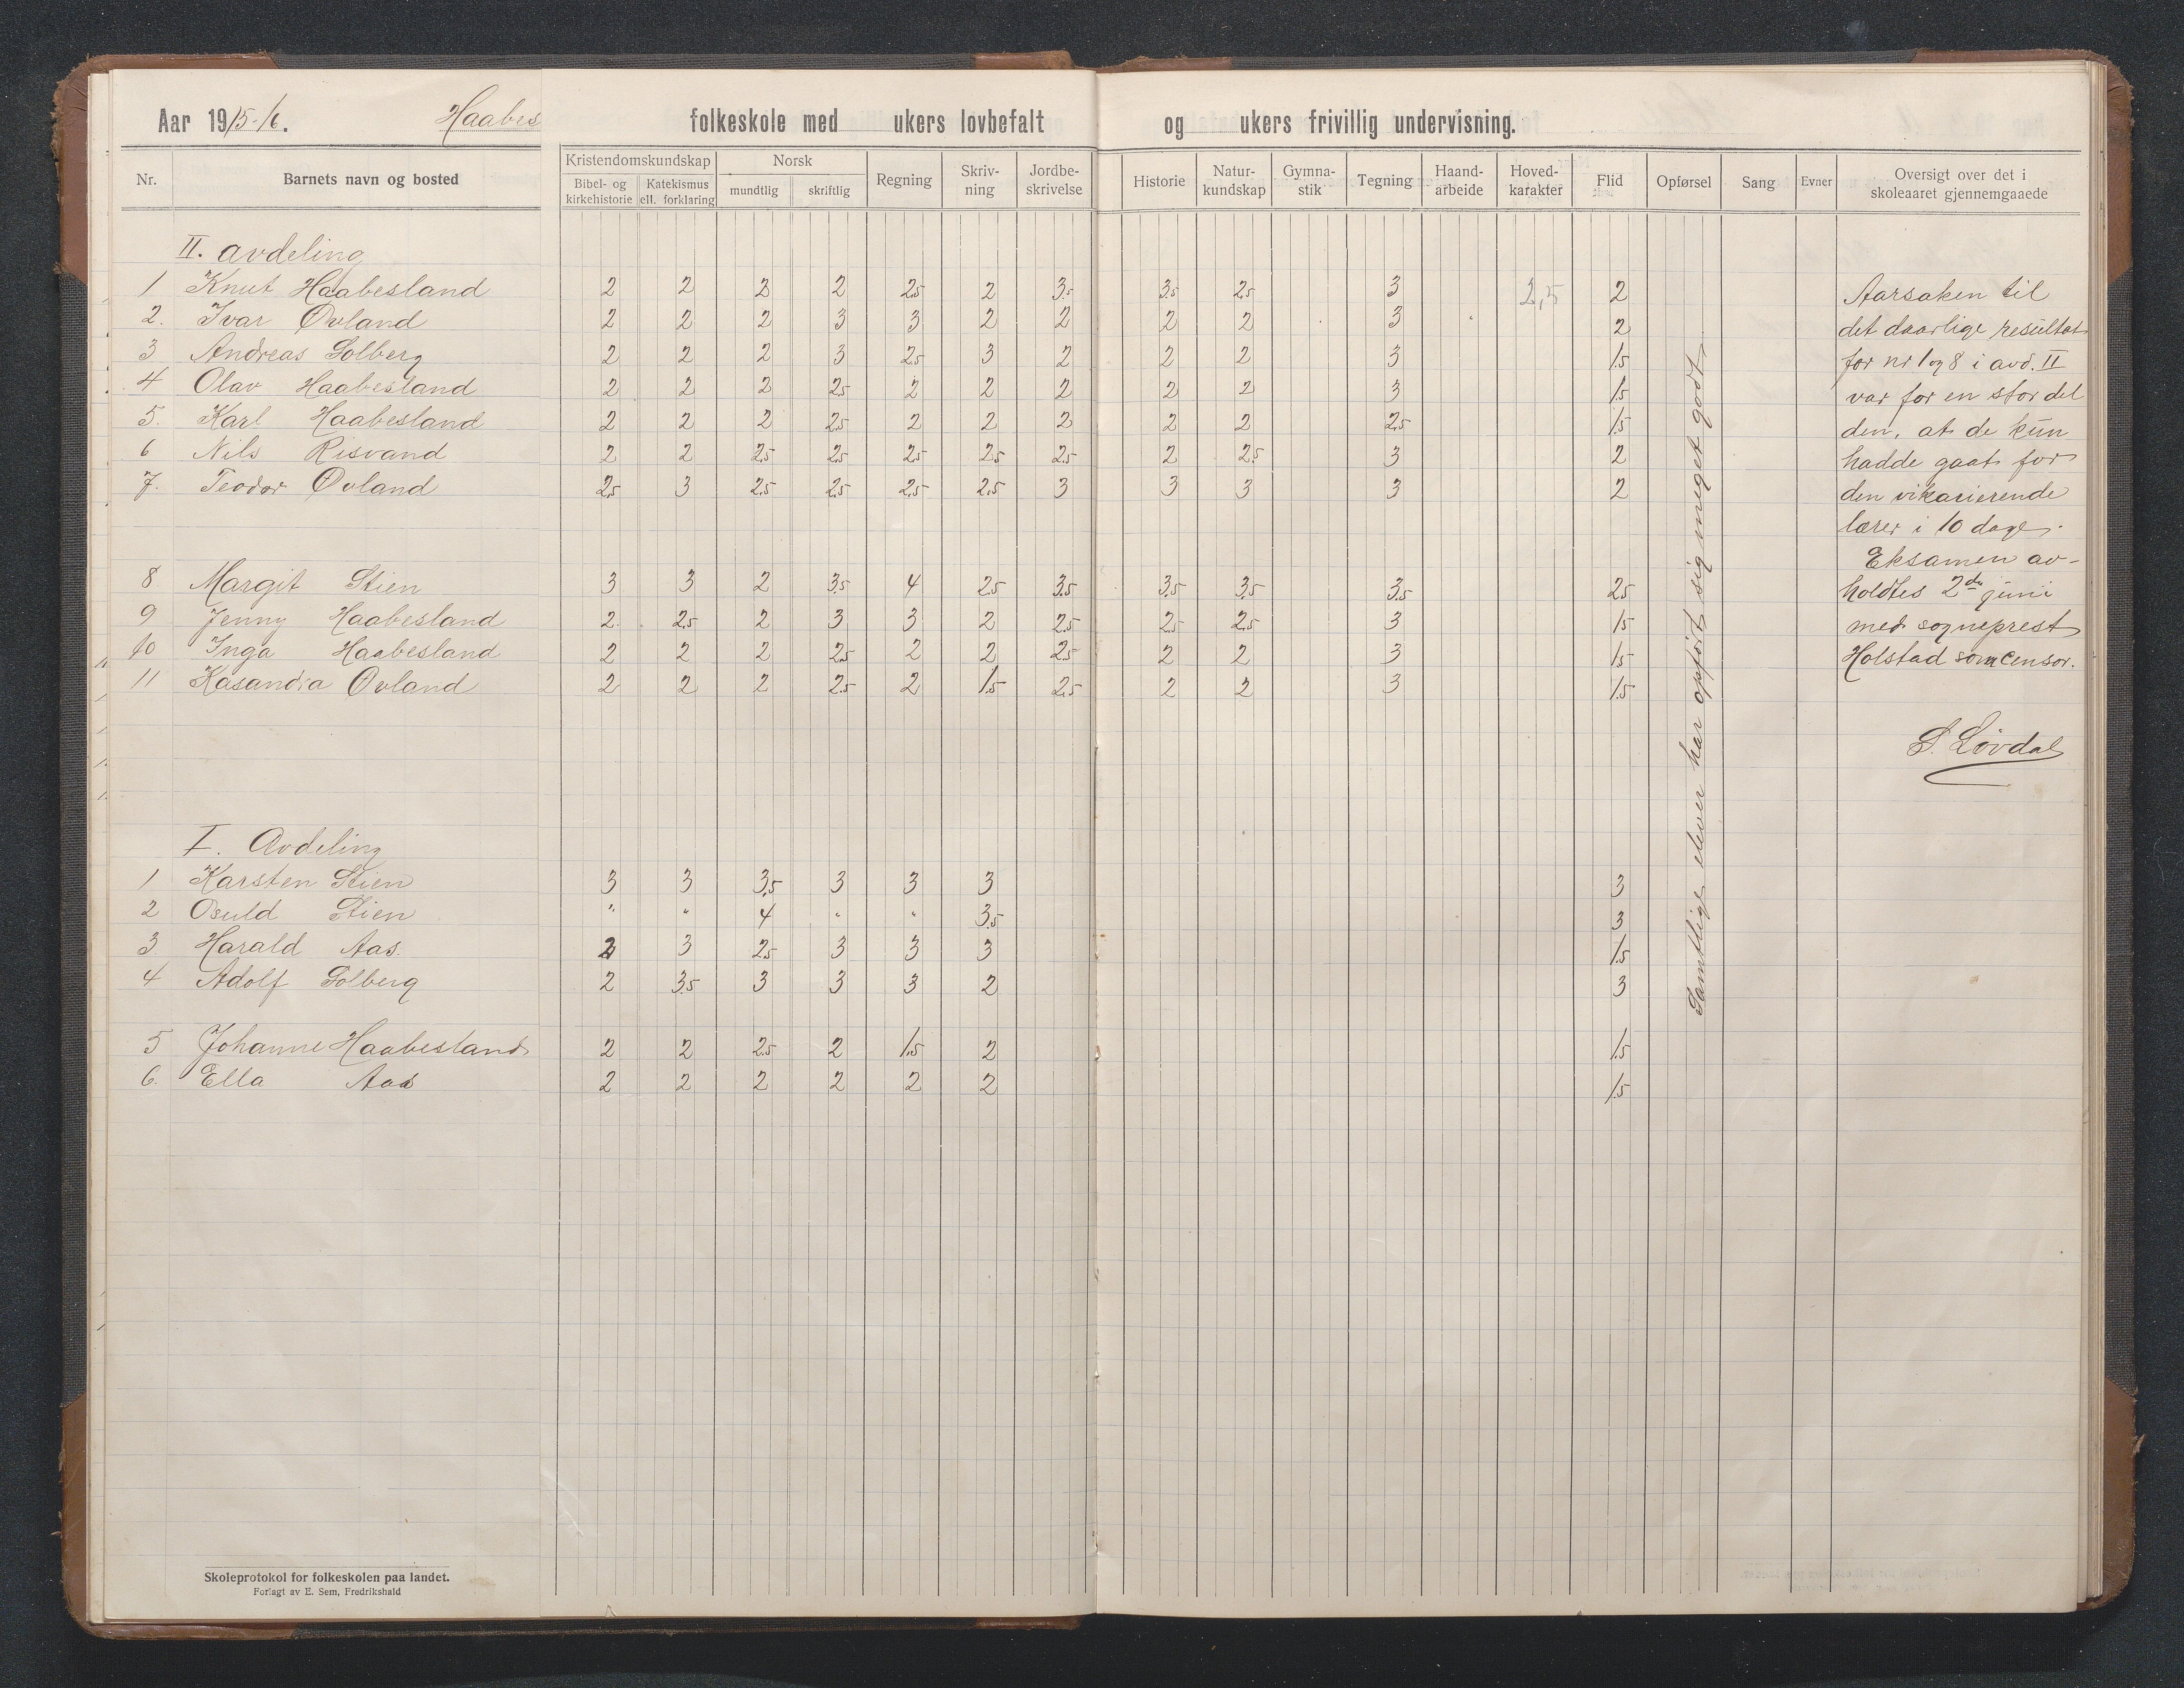 Aar 1915-16. Haabes folkeskole med ukers lovbefalt og ukers frivillig undervisning.
Nr. Barnets navn og bosted Kristendomskundskap Bibel- og kirkehistorie Katekismus ell. forklaring Norsk mundtlig skriftlig Regning Skriv-ning Jordbe-skrivelse Historie Natur-kundskap Gymna-stik Tegning Haand-arbeide Hoved-karakter Flid Opførsel Sang Evner Oversigt over det i skoleaaret gjennemgaaede
II. avdeling
1 Knut Haabesland 2 2 2 2 2.5 2 3.5 3.5 2.5 3 2,5 2
2. Ivar Øvland 2 2 2 3 3 2 2 2 2 3 2
3 Andreas Solberg 2 2 2 3 2.5 3 2 2 2 3 1.5
4 Olav Haabesland 2 2 2 2.5 2 2 2 2 2 3 1.5
5. Karl Haabesland 2 2 2 2.5 2 2 2 2 2 2.5 1.5
6 Nils Risvand 2 2 2.5 2.5 2.5 2.5 2.5 2 2.5 3 2
7. Teodor Øvland 2.5 3 2.5 2.5 2.5 2.5 3 3 3 3 2
8 Margit Stien 3 3 2 3.5 4 2.5 3.5 3.5 3.5 3.5 2.5
9 Jenny Haabesland 2. 2.5 2 3 3 2 2.5 2.5 2.5 3 1.5
10 Inga Haabesland 2 2 2 2.5 2 2 2.5 2 2 3 1.5
11 Kasandra Øvland 2 2 2 2.5 2 1.5 2.5 2 2 3 1.5
I. Avdeling
1 Karsten Stien 3 3 3.5 3 3 3 3
2 Osuld Stien " " 4 " " 3.5 3
3. Harald Aas. 2 3 2.5 3 3 3 1.5
4 Adolf Solberg 2 3.5 3 3 3 2 3
5 Johanne Haabesland 2 2 2.5 2 1.5 2 1.5
6. Ella Aas 2 2 2 2 2 2 1.5
Samtlige elever har opført sig meget godt
Aarsaken til
det daarlige resultat
for nr 1 og 8 i avd. II
var for en stor del
den, at de kun
hadde gaat for
den vikarierende
lærer i 10 dage.
Eksamen av-
holdtes 2den juni
med sogneprest
Holstad som censor.
S. Løvdal
Skoleprotokol for folkeskolen paa landet.
Forlagt av E. Sem, Fredrikshald